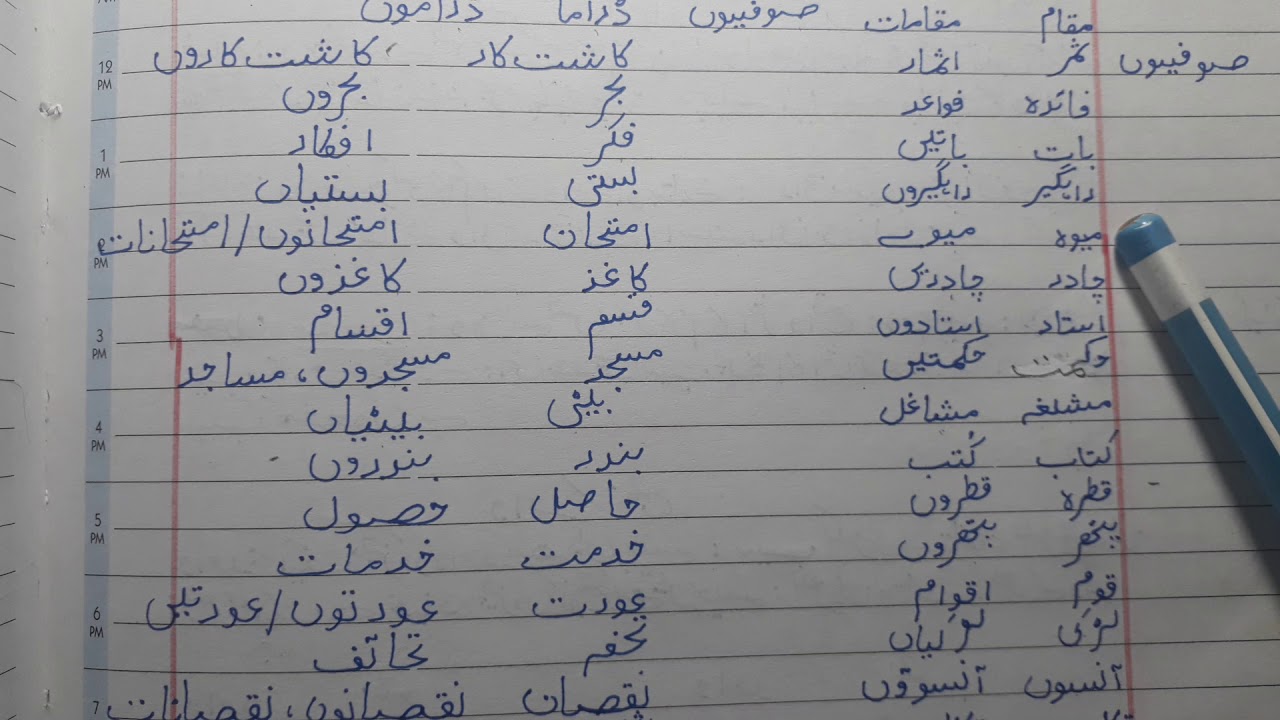 مقام مقامات صوفیوں ڈراما ڈراموں
صوفیوں ثمر اثمار کاشت کار کاشت کاروں
فائدہ فوائد بحر بحروں
بات باتیں فکر افکار
راہگیر راہگیروں بستی بستیاں
میوہ میوے امتحان امتحانوں/امتحانات
چادر چادریں کاغذ کاغذوں
استاد استادوں قسم اقسام
حکمت حکمتیں مسجد مسجدوں، مساجد
مشغلہ مشاغل بیٹی بیٹیاں
کتاب کُتب بندر بندروں
قطرہ قطروں حاصل حصول
پتھر پتھروں خدمت خدمات
قوم اقوام عورت عورتوں/عورتیں
لڑکی لڑکیاں تحفہ تحائف
آنسوں آنسوؤں نقصان نقصانوں، نقصانات